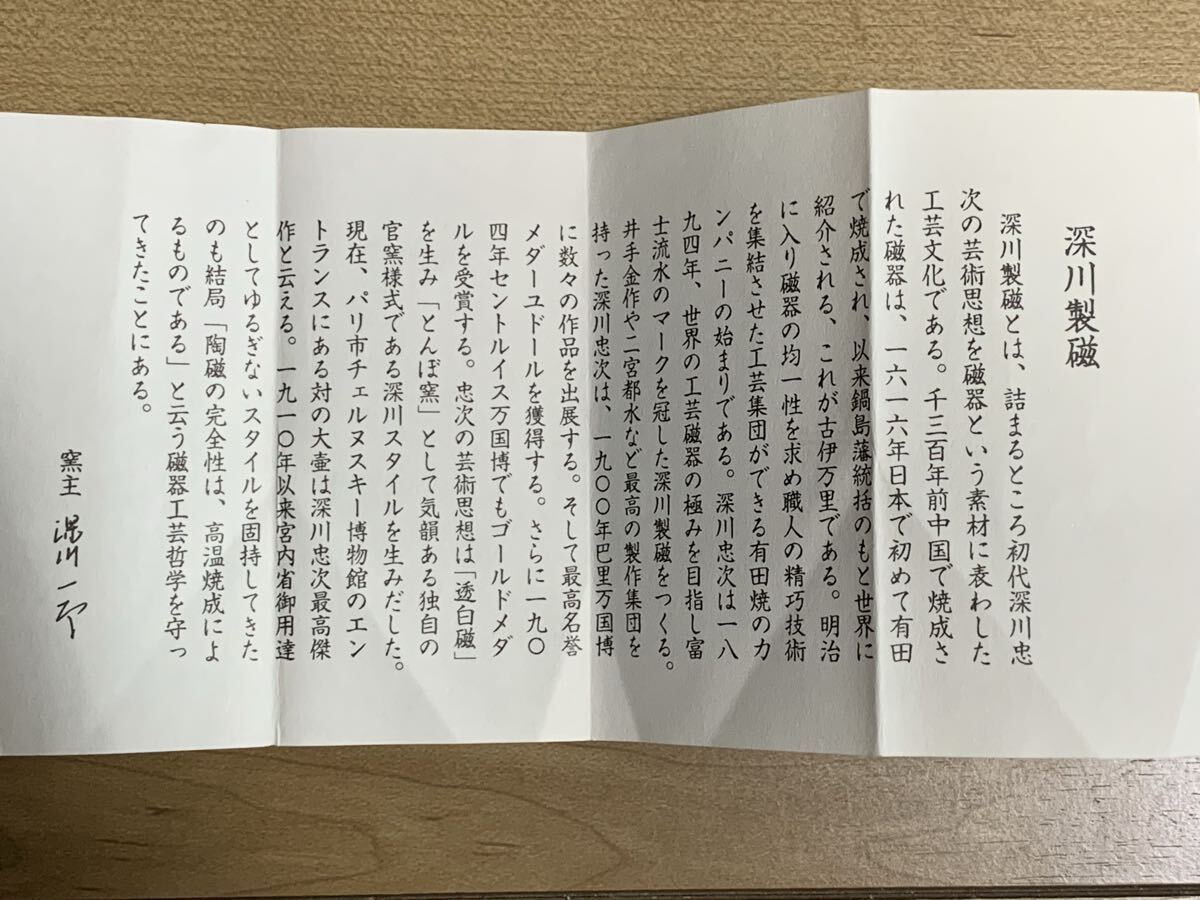 深川製磁
深川製磁とは、詰まるところ初代深川忠
次の芸術思想を磁器という素材に表わした
工芸文化である。千三百年前中国で焼成さ
れた磁器は、一六一六年日本で初めて有田
で焼成され、以来鍋島藩統括のもと世界に
紹介される、これが古伊万里である。明治
に入り磁器の均一性を求め職人の精巧技術
を集結させた工芸集団ができる有田焼のカ
ンパニーの始まりである。深川忠次は一八
九四年、世界の工芸磁器の極みを目指し富
士流水のマークを冠した深川製磁をつくる。
井手金作や二宮都水など最高の製作集団を
持った深川忠次は、一九〇〇年巴里万国博
に数々の作品を出展する。そして最高名誉
メダーユドールを獲得する。さらに一九〇
四年セントルイス万国博でもゴールドメダ
ルを受賞する。忠次の芸術思想は「透白磁」
を生み「とんぼ窯」として気韻ある独自の
官窯様式である深川スタイルを生みだした。
現在、パリ市チェルヌスキー博物館のエン
トランスにある対の大壷は深川忠次最高傑
作と云える。一九一〇年以来宮内省御用達
としてゆるぎないスタイルを固持してきた
のも結局「陶磁の完全性は、高温焼成によ
るものである」と云う磁器工芸哲学を守っ
てきたことにある。
窯主 深川一